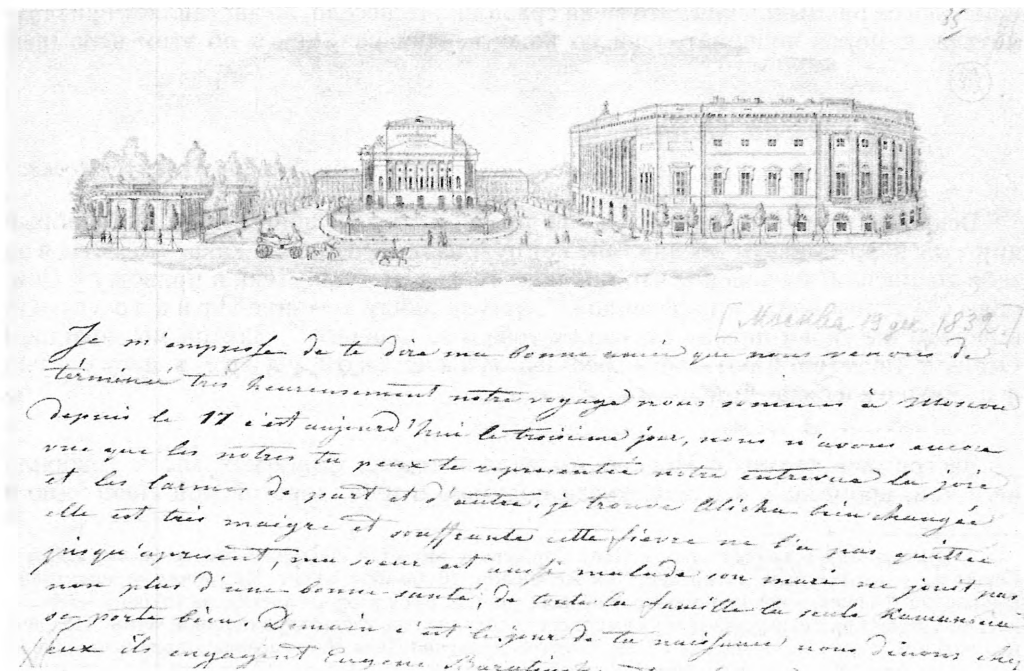 35
[Москва 19 дек. 1839.]
Je m'empresse de te dire ma bonne amie que nous venons de
términer tres heureusement notre voyage nous sommes à Moscou
depuis le 17 c'est aujourd'hui le troisieme jour, nous n'avons encore
vue que les notres tu peux te représenté notre entrevue la joie
et les larmes de part et d'autre. je trouve bien changée
elle est très maigre et souffrante cette fievre ne l'a pas quittée
jusqu'apresent, ma soeur est aussi malade son mari ne jouit pas
non plus d'une bonne santé; de toute la famille la seule
se porte bien. Demain c'est le jour de ta naissance nous dinons chez
eux ils engagent Eugene